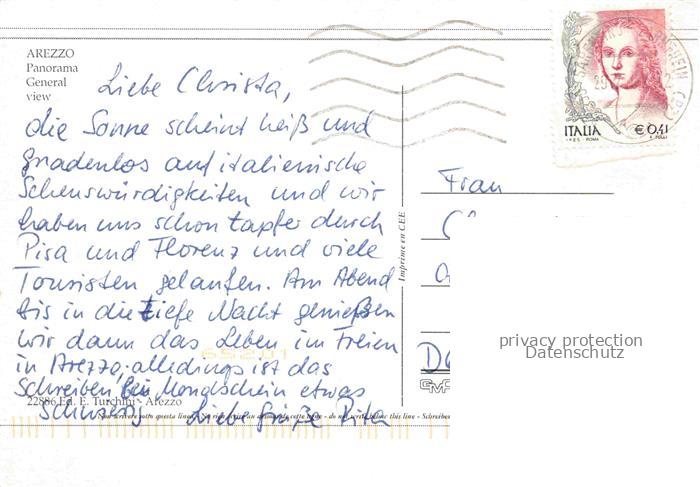 AREZZO
Panorama
General
view
Liebe Christa,
die Sonne scheint heiß und
gnadenlos auf italienische
Sehenswürdigkeiten und wir
haben uns schon tapfer durch
Pisa und Florenz und viele
Touristen gelaufen. Am Abend
bis in die tiefe Nacht genießen
wir dann das Leben im Freien
in Arezzo, alledings ist das
Schreiben bei Mondschein etwas
schwierig Liebe Grüße Rita
22886 Ed. E. Turchini - Arezzo
Non scrivere sotto questa linea - do not write below this line - Schreiben
Imprimé en CEE
ITALIA € 0,41
I.P.Z.S. - ROMA
Frau
C
D
65201
privacy protection
Datenschutz